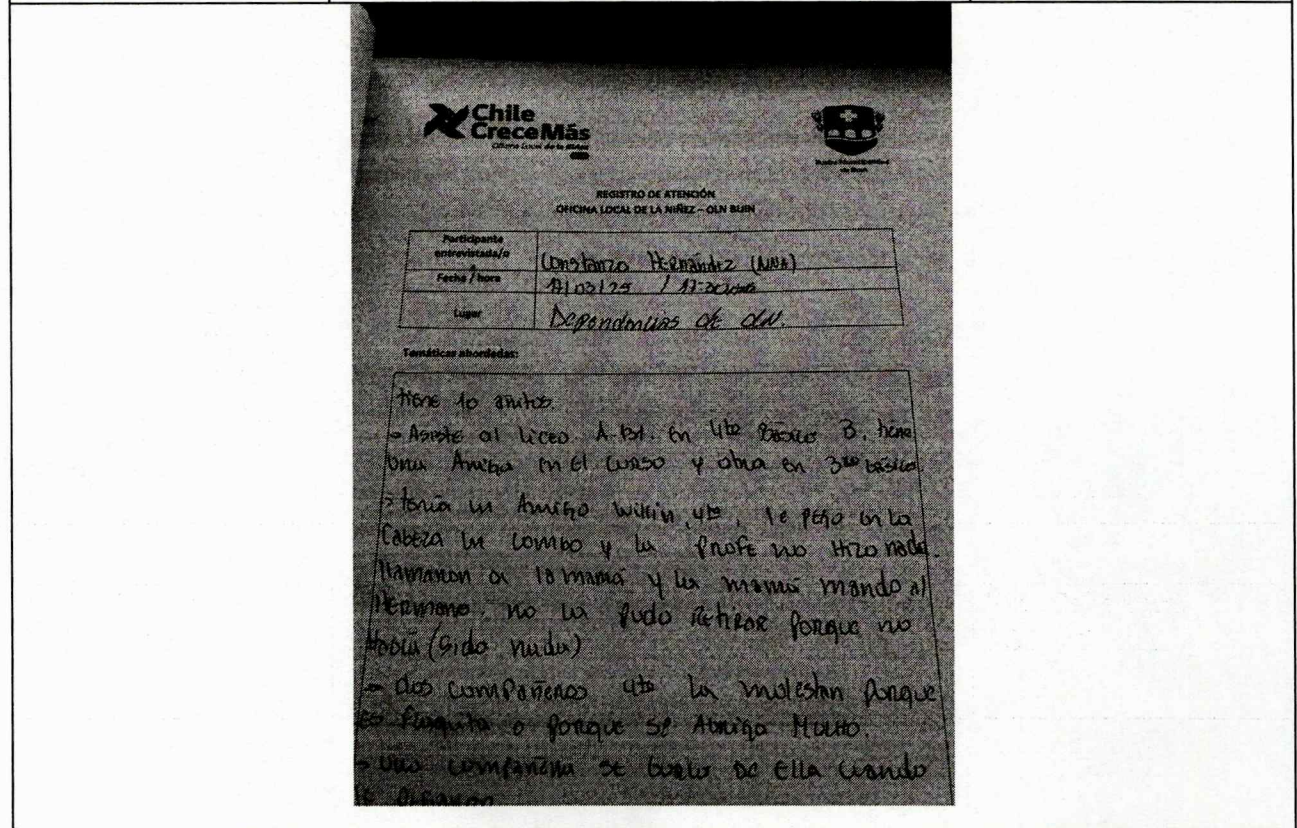 Chile
CreceMás
Oficina Local de la Niñez
REGISTRO DE ATENCIÓN
OFICINA LOCAL DE LA NIÑEZ – OLN BUIN
Participante
entrevistada/o
Hernández (NNA)
Fecha / hora
/03/25 /
Lugar
Dependencias de OLN.
Temáticas abordadas:
tiene 10 añitos.
Asiste al liceo A-131. En 4to Básico B, tiene
una Amiga en el curso y otra en 3ro básico
tenía un Amigo, 4to, le pegó en la
Cabeza un combo y la profe no Hizo nada.
llamaron a la mamá y la mamá mandó al
Hermano. no la pudo Retirar porque no
Había (sido nada)
dos compañeros 4to la molestan porque
es flaquita o porque se Abriga Mucho.
una compañera se burló de Ella cuando